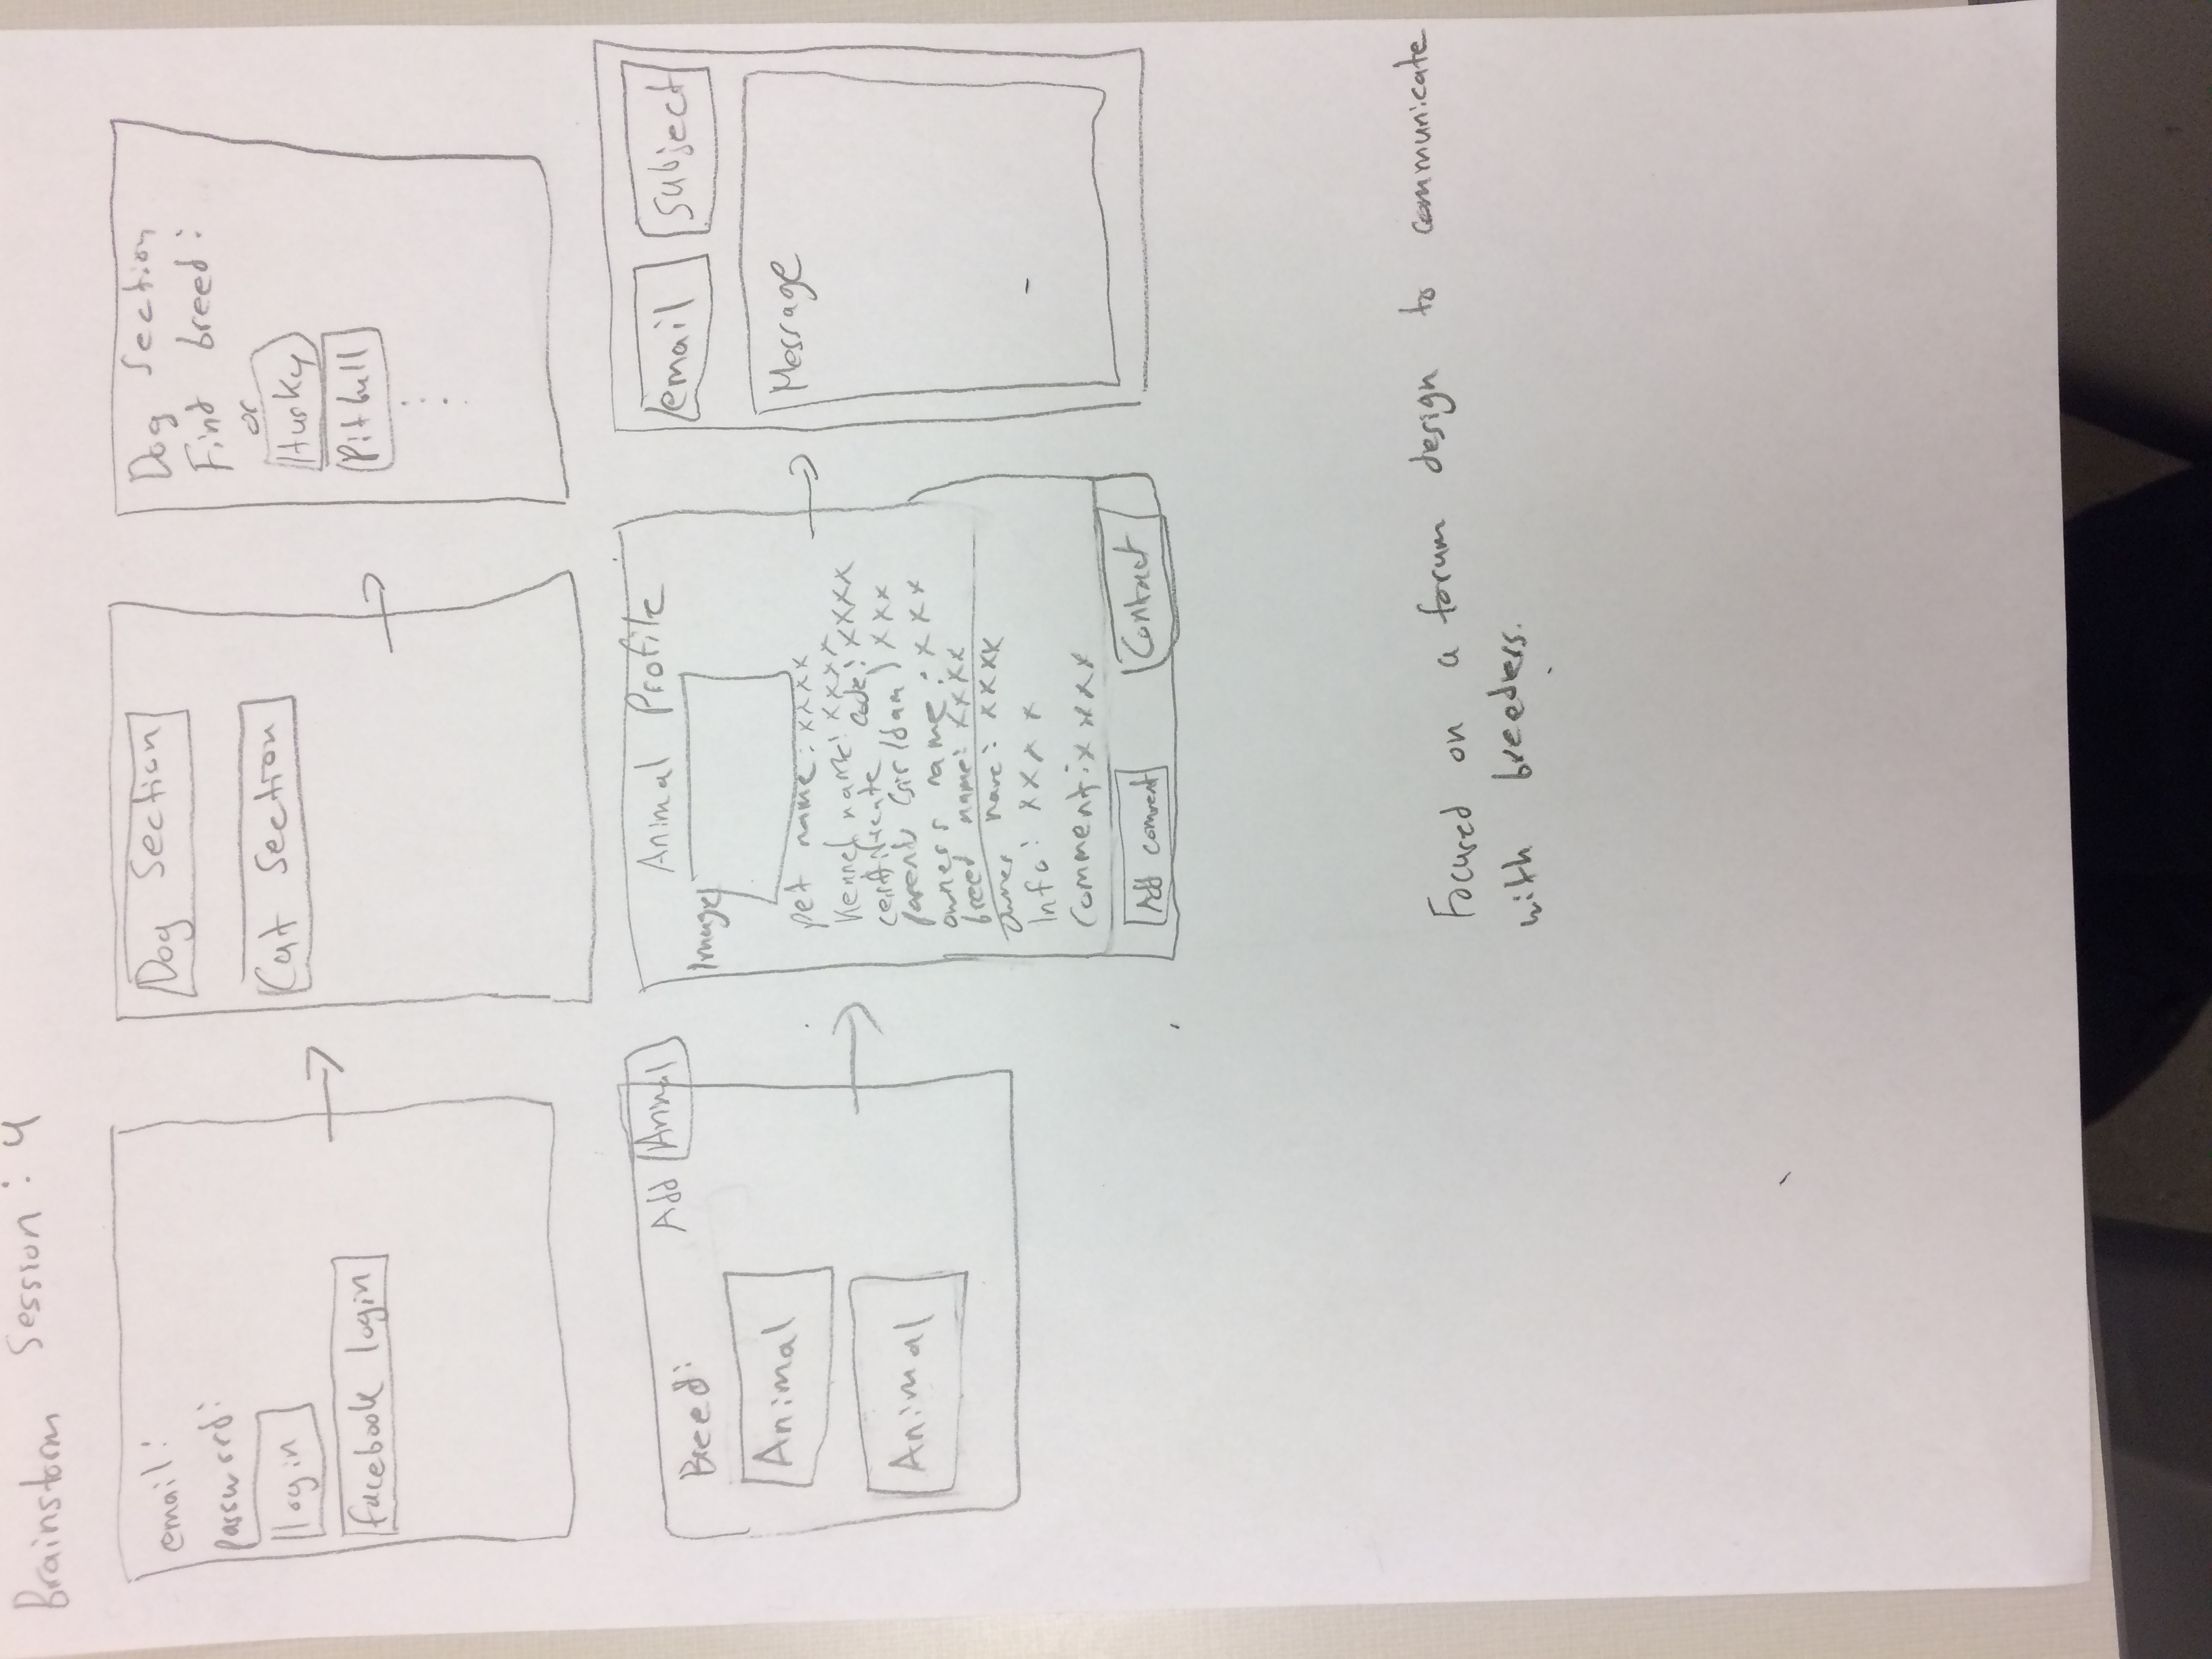 Brainstorm Session: 4
email:
password:
login
facebook login
Dog Section
Cat Section
Dog Section
Find breed:
or
Husky
Pitbull
Breed:
Add Animal
Animal
Animal
Animal Profile
Image
pet name: xxxx
Kennel name: xxxx
certificate code: xxxx
parents (sir/dam) xxx
owners name: xxx
breed name: xxxx
owner name: xxxx
Info: xxxx
Comment: xxxx
Add comment
Contact
email
subject
Message
Focused on a forum design to communicate
with breeders.